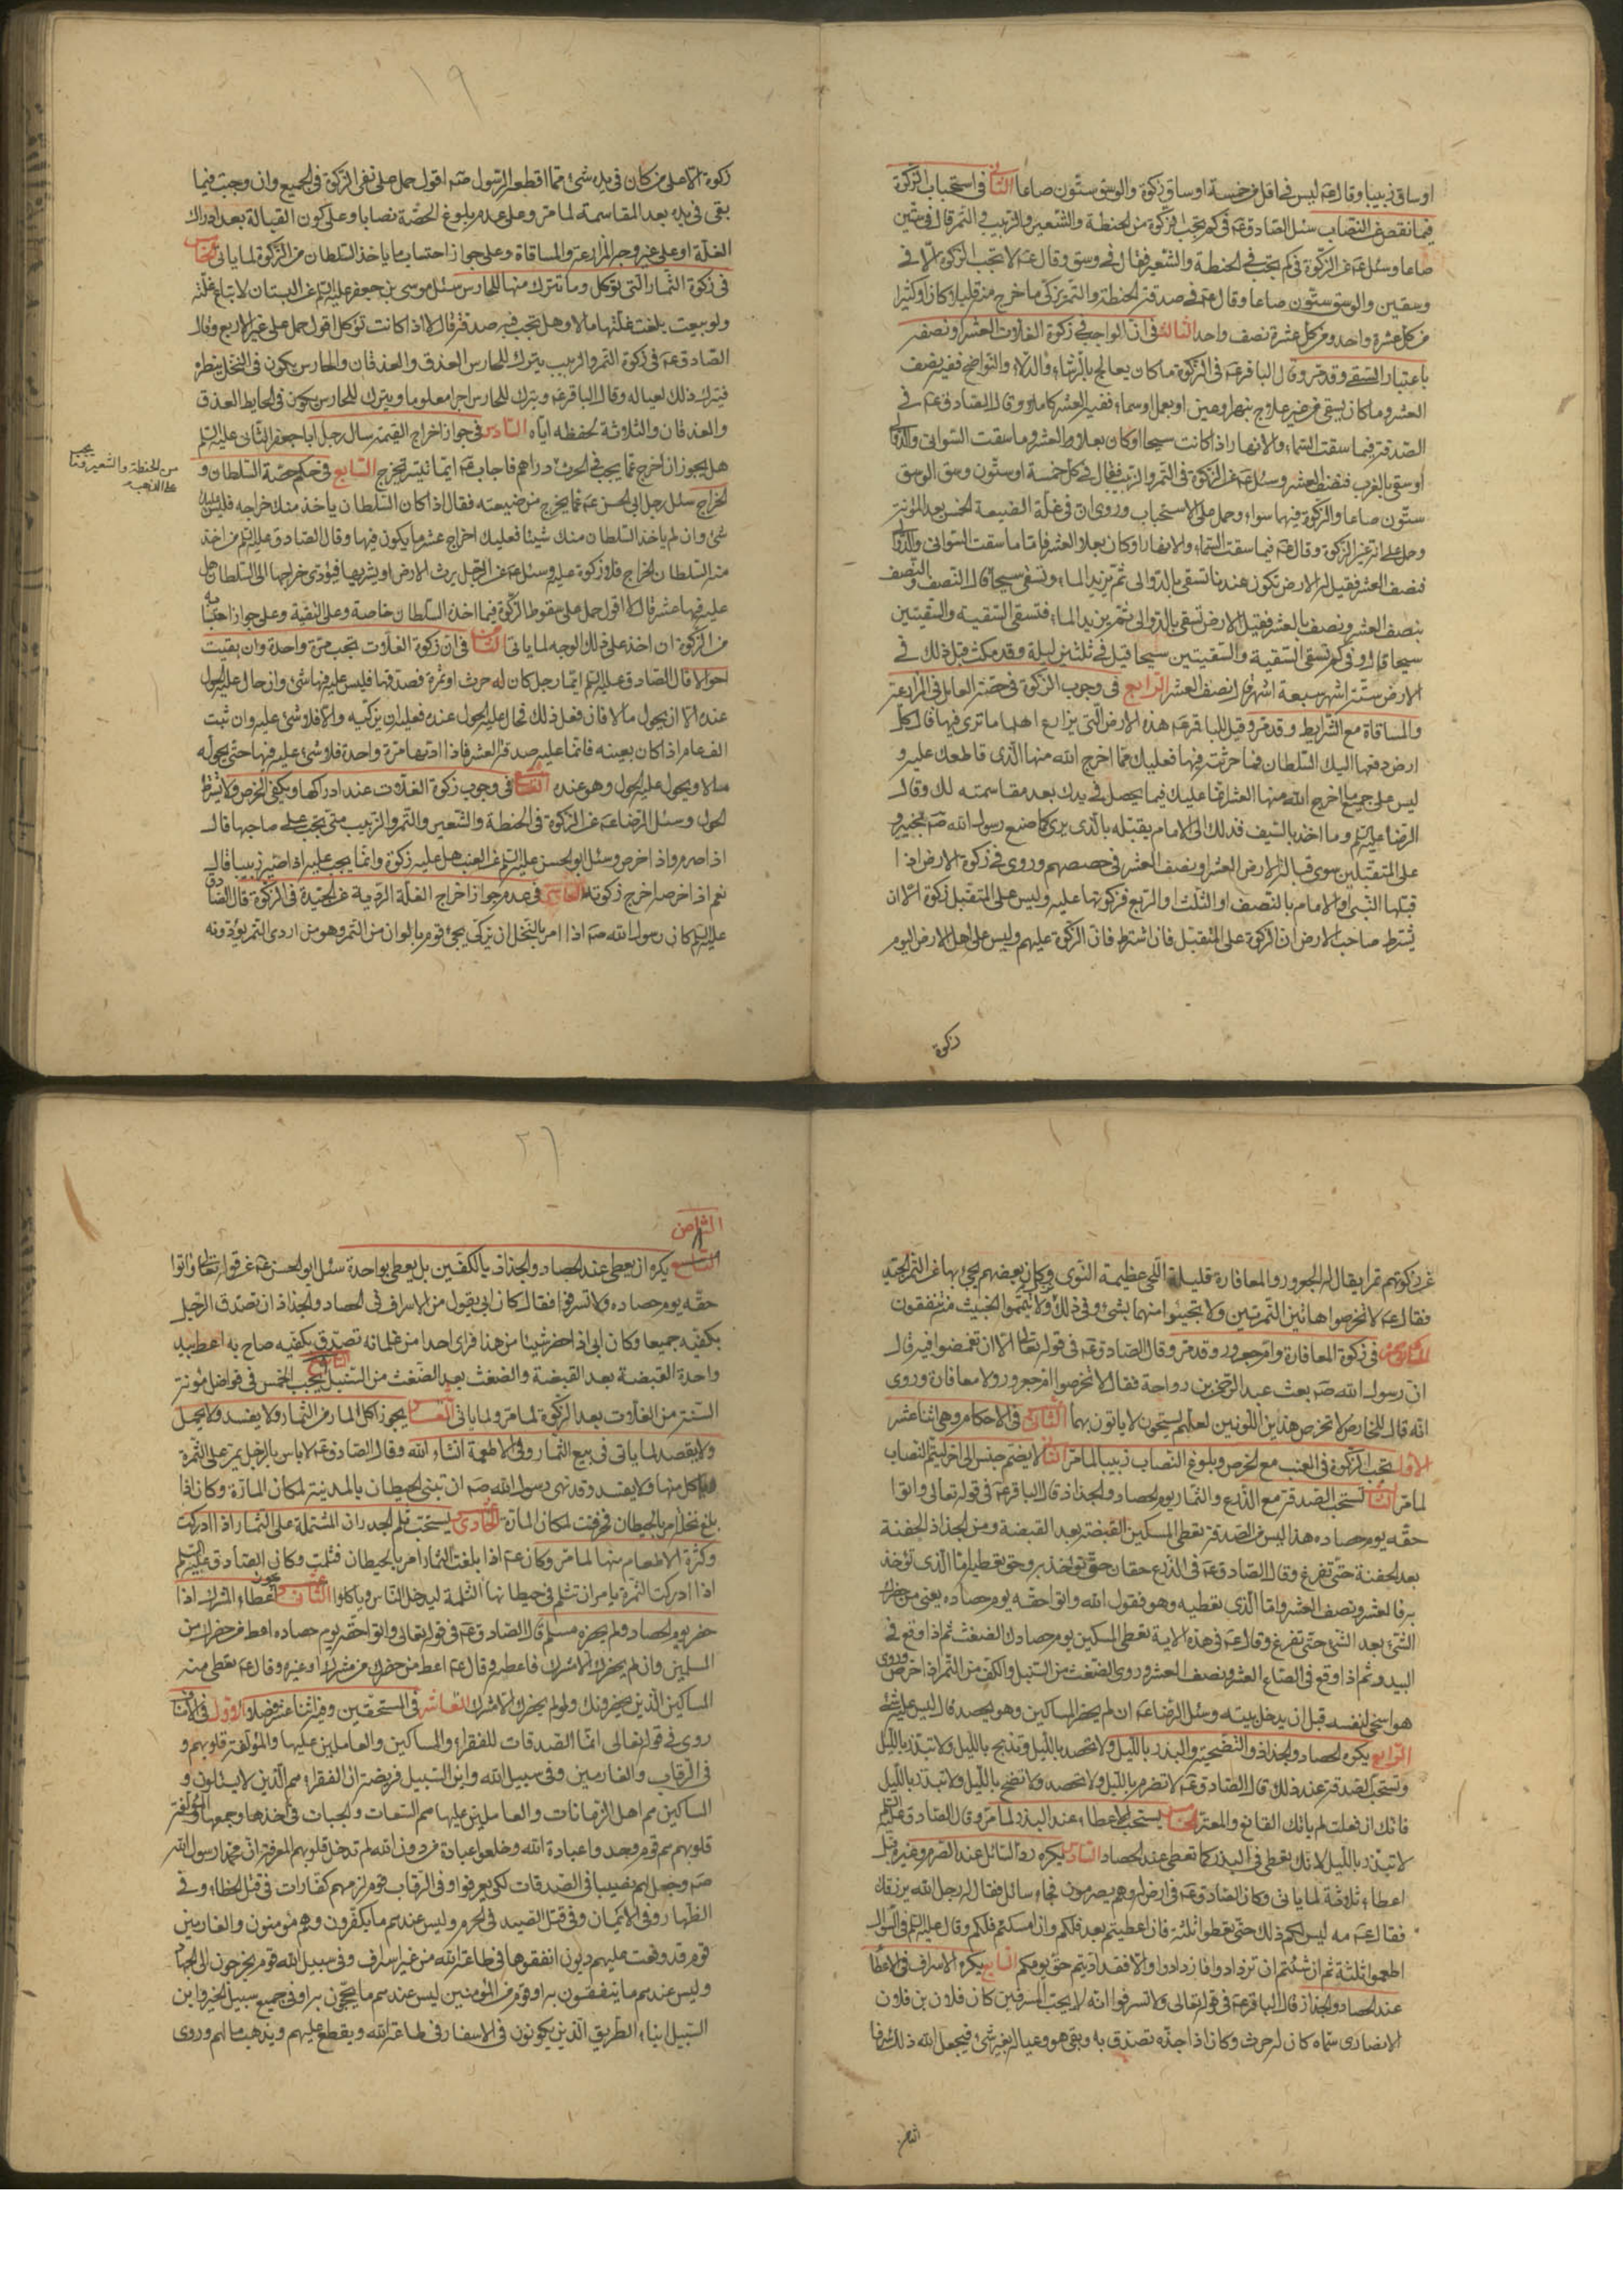 اوساق زبيبا وقال ع ليس فى اقل من خمسة اوساق زكوة والوسق ستّون صاعا الثانى فى استحباب الزكوة
فيما نقص عن النصاب سئل الصادق ع فى كم تجب الزكوة من الحنطة والشعير والزبيب والتمر قال فى ستين
صاعا وسئل ع عن الزكوة فى كم تجب فى الحنطة والشعير فقال فى وسق وقال ع لا تجب الزكوة الّا فى
وسقين والوسق ستّون صاعا وقال ع فى صدقة الحنطة والتمر زكّ ما خرج منه قليلا كان او كثيرا
من كل عشرة واحد ومن كل عشرة نصف واحد الثالث فى انّ الواجب فى زكوة الغلات العشر او نصفه
باعتبار السقى وقد مر وقال الباقر ع فى الزكوة ما كان يعالج بالرشاء والدلاء والنواضح ففيه نصف
العشر وما كان يسقى من غير علاج بنهر او عين او بعل او سماء ففيه العشر كاملا وقال الصادق ع فى
الصدقة فيما سقت السماء والانهار اذا كانت سيحا او كان بعلا العشر وما سقت السوانى والدوالى
او سقى بالغرب فنصف العشر وسئل ع عن الزكوة فى التمر والزبيب فقال فى كل خمسة اوساق وسق والوسق
ستّون صاعا والزكوة فيهما سواء وحمل على الاستحباب وروى ان فى غلّة الضيعة الخمس بعد المؤنة
وحمل على انه غير الزكوة وقال ع فيما سقت السماء والانهار او كان بعلا العشر فامّا ما سقت السوانى والدوالى
فنصف العشر فقيل له الارض تكون عندنا تسقى بالدوالى ثم يزيد الماء وتسقى سيحا قال النصف والنصف
بنصف العشر ونصف بالعشر فقيل الارض تسقى بالدوالى ثم يزيد الماء فتسقى السقية والسقيتين
سيحا قال وفى كم تسقى السقية والسقيتين سيحا قيل فى ثلثين ليلة وقد مكث قبل ذلك فى
الارض ستة اشهر سبعة اشهر قال نصف العشر الرابع فى وجوب الزكوة فى حصة العامل فى المزارعة
والمساقاة مع الشرايط وقد مر وقيل للباقر ع هذه الارض التى يزارع اهلها ما ترى فيها قال كلّ
ارض دفعها اليك السلطان فما حرثته فيها فعليك مما اخرج الله منها الذى قاطعك عليه و
ليس على جميع ما اخرج الله منها العشر انما عليك فيما يحصل فى يدك بعد مقاسمته لك وقال
الرضا عليه السلم وما اخذ بالسيف فذلك الى الامام يقبّله بالذى يرى كما صنع رسول الله ص بخيبر و
على المتقبلين سوى قبالة الارض العشر او نصف العشر فى حصصهم وروى فى زكوة الارض اذا
قبّلها النبى او الامام بالنصف او الثلث او الربع فزكوتها عليه وليس على المتقبل زكوة الّا ان
يشترط صاحب الارض ان الزكوة على المتقبل فان اشترط فان الزكوة عليهم وليس على اهل الارض اليوم
زكوة
١٩
زكوة الّا على من كان فى يده شئ مما اقطعه الرسول ص اقول حمل على نفى الزكوة فى الجميع وان وجبت فيما
بقى فى يده بعد المقاسمة لما مر وعلى عدم بلوغ الحصّة نصابا وعلى كون القبالة بعد ادراك
الغلّة او على غير وجه المزارعة والمساقاة وعلى جواز احتساب ما ياخذ السلطان من الزكوة لما ياتى الخامس
فى زكوة الثمار التى تؤكل وما يترك منها للحارس سئل موسى بن جعفر عليه السلم عن البستان لا تباع غلّته
ولو بيعت بلغت غلّتها مالا وهل تجب فيه صدقة قال لا اذا كانت تؤكل اقول حمل على غير الاربع وقال
الصادق ع فى زكوة التمر والزبيب يترك للحارس العذق والعذقان والحارس يكون فى النخل ينظره
فيترك ذلك لعياله وقال الباقر ع ويترك للحارس اجرا معلوما ويترك للحارس يكون فى الحايط العذق
والعذقان والثلاثة لحفظه اياه السادس فى جواز اخراج القيمة سال رجل ابا جعفر الثانى عليه السلم
هل يجوز ان اخرج عما يجب فى الحرث دراهم فاجاب ع ايما تيسر تخرج السابع فى حكم حصة السلطان و
من الحنطة والشعير وما يجب
على الذهب
الخراج سئل رجل ابى الحسن ع عما يخرج من ضيعته فقال اذا كان السلطان ياخذ منك خراجه فليس عليك
شئ وان لم ياخذ السلطان منك شيئا فعليك اخراج عشر ما يكون فيها وقال الصادق عليه السلم من اخذ
منه السلطان الخراج فلا زكوة عليه وسئل ع عن الرجل يرث الارض او يشتريها فيؤدى خراجها الى السلطان هل
عليه فيها عشر قال لا اقول حمل على سقوط الزكوة فيما اخذه السلطان خاصة وعلى التقية وعلى جواز احتسابه
من الزكوة ان اخذ على ذلك الوجه لما ياتى الثامن فى ان زكوة الغلات تجب مرّة واحدة وان بقيت
احوالا قال الصادق عليه السلم ايما رجل كان له حرث او ثمرة فصدقها فليس عليه فيها شئ وان حال عليه الحول
عنده الّا ان يحول مالا فان فعل ذلك فحال عليه الحول عنده فعليه ان يزكّيه والّا فلا شئ عليه وان ثبت
الف عام اذا كان بعينه فانما عليه صدقة العشر فاذا ادّاها مرّة واحدة فلا شئ عليه فيها حتى يحوله
مالا ويحول عليه الحول وهو عنده التاسع فى وجوب زكوة الغلات عند ادراكها ويكفى الخرص ولا يشترط
الحول وسئل الرضا ع عن الزكوة فى الحنطة والشعير والتمر والزبيب متى تجب على صاحبها قال
اذا صرم واذا خرص وسئل ابو الحسن عليه السلم عن العنب هل عليه زكوة وانما يجب عليه اذا صيّره زبيبا قال
نعم اذا خرصه اخرج زكوته العاشر فى عدم جواز اخراج الغلّة الردية عن الجيّدة فى الزكوة قال الصادق
عليه السلم كان رسول الله ص اذا امر بالنخل ان يزكى يجئ قوم بالوان من التمر وهو من اردى التمر يؤدّونه
عن زكوتهم تمرا يقال له الجعرور والمعافارة قليلة اللحى عظيمة النوى وكان بعضهم يجئ بها عن التمر الجيد
فقال ع لا تخرصوا هاتين التمرتين ولا يجيئوا منهما بشئ وفى ذلك ولا تيمّموا الخبيث منه تنفقون
الحادى عشر فى زكوة المعافارة وام جعرور وقد مر وقال الصادق ع فى قوله تعالى الّا ان تغمضوا فيه قال
ان رسول الله ص بعث عبد الرحمن بن رواحة فقال لا تخرصوا ام جعرور ولا معافارة وروى
انه قال للخارص لا تخرص هذين اللونين لعلهم يستحيون لا ياتون بهما الثانى عشر فى الاحكام وهى اثنا عشر
الاول تجب الزكوة فى العنب مع الخرص وبلوغ النصاب زبيبا لما مر الثانى لا يضم جنس الى اخر ليتم النصاب
لما مر الثالث تستحب الصدقة مع الزرع والثمار يوم الحصاد والجذاذ قال الباقر ع فى قوله تعالى واتوا
حقّه يوم حصاده هذا ليس من الصدقة تعطى المسكين القبضة بعد القبضة ومن الجذاذ الحفنة
بعد الحفنة حتى تفرغ وقال الصادق ع فى الزرع حقان حق تؤخذ به وحق تعطيه امّا الذى تؤخذ
به فالعشر ونصف العشر وامّا الذى تعطيه وهو فقول الله واتوا حقه يوم حصاده يعنى من حضرك
الشئ بعد الشئ حتى تفرغ وقال ع فى هذه الاية تعطى المسكين يوم حصادك الضغث ثم اذا وقع فى
البيدر ثم اذا وقع فى الصاع العشر ونصف العشر وروى الضغث من السنبل والكف من التمر اذا خرص وروى
هو اسخى لنفسه قبل ان يدخل بيته وسئل الرضا ع ان لم يحضر المساكين وهو يحصد قال ليس عليه شئ
الرابع يكره الحصاد والجذاذ والتضحية والبذر بالليل ولا تحصد بالليل وتذبح بالليل ولا تبذر بالليل
وتستحب الصدقة عند ذلك قال الصادق ع لا تصرم بالليل ولا تحصد ولا تضح بالليل ولا تبذر بالليل
فانك ان فعلت لم ياتك القانع والمعتر الخامس يستحب الاعطاء عند البذر لما مر وقال الصادق عليه السلم
لا تبذر بالليل لانك تعطى فى البذر كما تعطى عند الحصاد السادس يكره ردّ السائل عند الصرم وغيره قبل
اعطاء ثلاثة لما ياتى وكان الصادق ع فى ارض له وهم يصرمون فجاء سائل فقال له رجل الله يرزقك
فقال ع مه ليس لكم ذلك حتى تعطوا ثلثة فان اعطيتم بعد فلكم وان امسكتم فلكم وقال عليه السلم فى السؤال
اطعموا ثلثة ثم ان شئتم ان تزدادوا فازدادوا والّا فقد اديتم حق يومكم السابع يكره الاسراف فى الاعطاء
عند الحصاد والجذاذ قال الباقر ع فى قوله تعالى ولا تسرفوا انه لا يحب المسرفين كان فلان بن فلان
الانصارى سمّاه كان له حرث وكان اذا جذّه تصدق به وبقى هو وعياله بغير شئ فجعل الله ذلك سرفا
الثامن
٢٠
الثامن
يكره ان يعطى عند الحصاد والجذاذ بالكفّين بل يعطى بواحدة سئل ابو الحسن ع عن قوله تعالى واتوا
حقّه يوم حصاده ولا تسرفوا فقال كان ابى يقول من الاسراف فى الحصاد والجذاذ ان تصدق الرجل
بكفّيه جميعا وكان ابى اذا حضر شيئا من هذا فراى احدا من غلمانه تصدق بكفّيه صاح به اعط بيد
واحدة القبضة بعد القبضة والضغث بعد الضغث من السنبل التاسع يجب الخمس فى فواضل مؤنة
السنة من الغلات بعد الزكوة لما مر ولما ياتى العاشر يجوز اكل المار من الثمار ولا يفسد ولا يحمل
ولا يقصد لما ياتى فى بيع الثمار وفى الاطعمة انشاء الله وقال الصادق ع لا باس بالرجل يمر على الثمرة
وياكل منها ولا يفسد وقد نهى رسول الله ص ان تبنى الحيطان بالمدينة لمكان المارة وكان اذا
بلغ نخله امر بالحيطان فخرقت لمكان المارة الحادى عشر يستحب ثلم الجدران المشتملة على الثمار اذا ادركت
وكثرة الاطعام منها لما مر وكان ع اذا بلغت الثمار امر بالحيطان فثلمت وكان الصادق عليه السلم
اذا ادركت الثمرة يامر ان تثلم فى حيطانها الثلمة ليدخل الناس وياكلوا الثانى عشر يجوز اعطاء المشرك اذا
حضر يوم الحصاد ولم يحضره مسلم قال الصادق ع فى قوله تعالى واتوا حقه يوم حصاده اعط من حضرك من
المسلمين وان لم يحضرك الّا مشرك فاعطه وقال ع اعط من حضرك من مشرك او غيره وقال ع تعطى منه
المساكين الذين يحضرونك ولو لم يحضرك الّا مشرك العاشر فى المستحقين وفيه اثنا عشر فصلا الاول فى الاصناف
روى فى قوله تعالى انما الصدقات للفقراء والمساكين والعاملين عليها والمؤلفة قلوبهم و
فى الرقاب والغارمين وفى سبيل الله وابن السبيل فريضة ان الفقراء هم الذين لا يسئلون و
المساكين هم اهل الزمانات والعاملين عليها هم السعاة والجباة فى اخذها وجمعها والمؤلفة
قلوبهم هم قوم وحدوا عبادة الله وخلعوا عبادة من دون الله لم تدخل قلوبهم المعرفة ان محمدا رسول الله
ص وجعل لهم نصيبا فى الصدقات لكى يعرفوا وفى الرقاب قوم لزمهم كفارات فى قتل الخطاء وفى
الظهار وفى الايمان وفى قتل الصيد فى الحرم وليس عندهم ما يكفّرون وهم مؤمنون والغارمين
قوم قد وقعت عليهم ديون انفقوها فى طاعة الله من غير اسراف وفى سبيل الله قوم يخرجون الى الجهاد
وليس عندهم ما ينفقون به او قوم من المؤمنين ليس عندهم ما يحجّون به او فى جميع سبيل الخير وابن
السبيل ابناء الطريق الذين يكونون فى الاسفار فى طاعة الله ويقطع عليهم ويذهب مالهم وروى